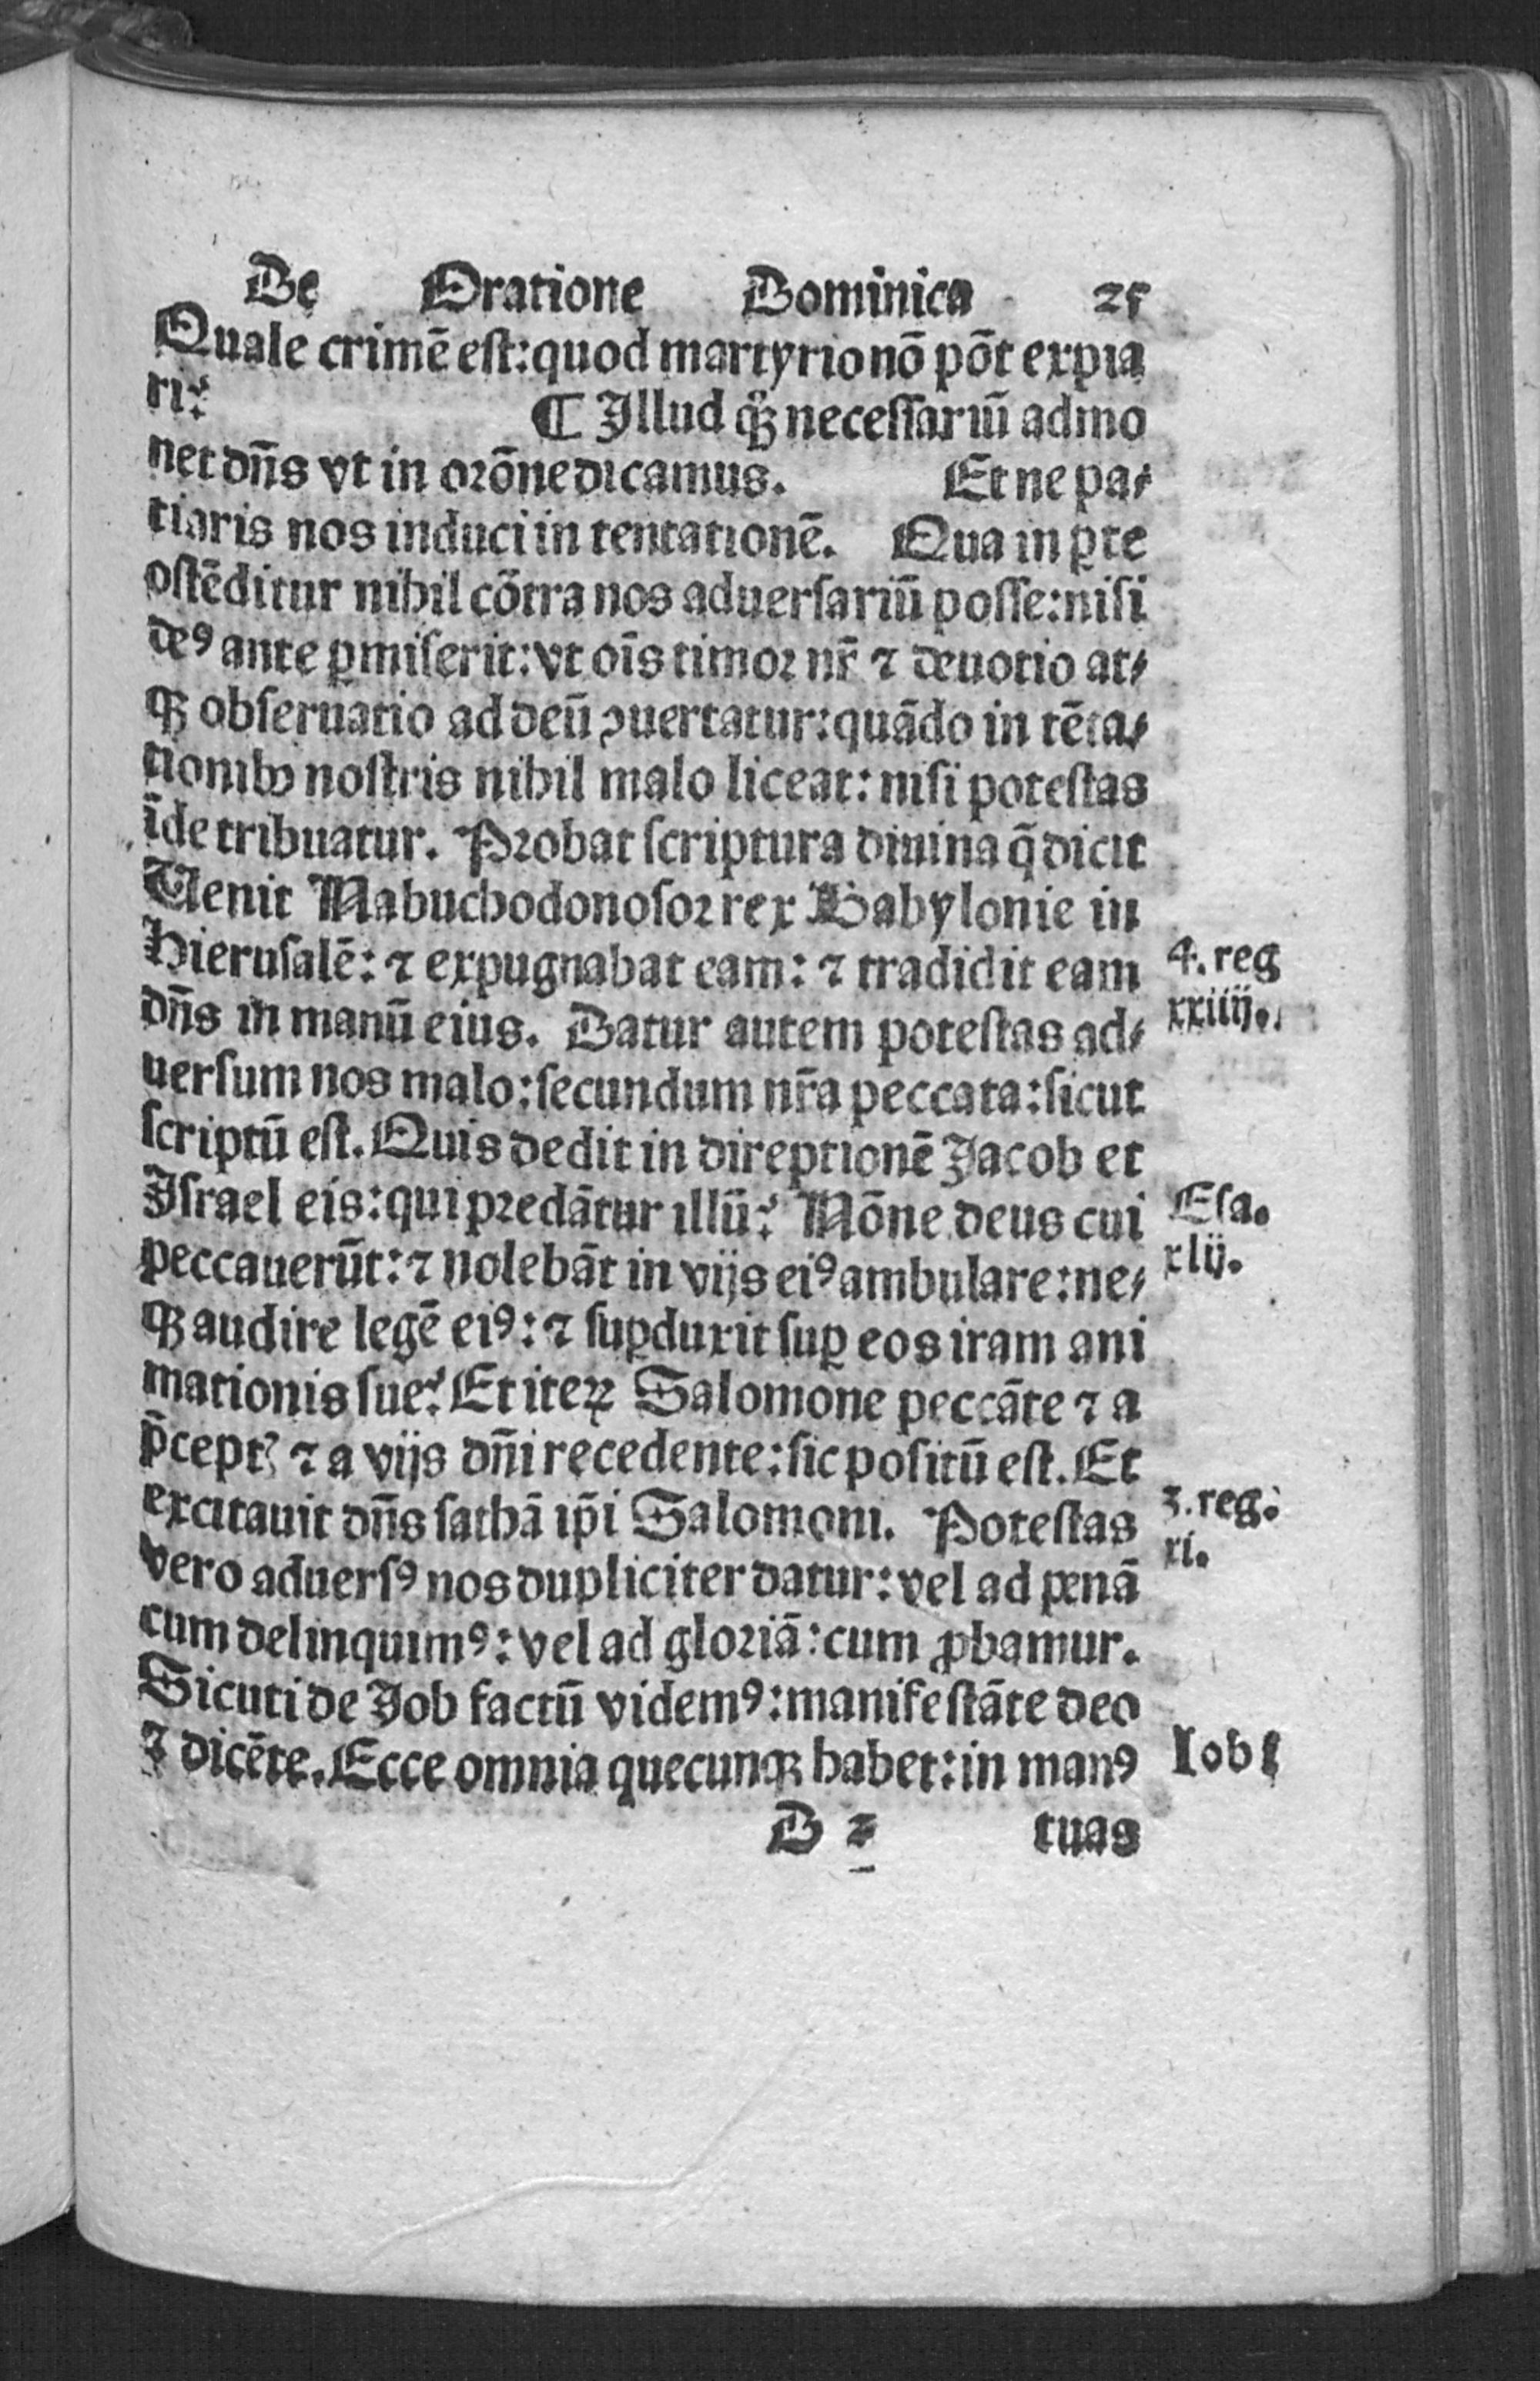 De Oratione Dominica 25
Quale crimē est: quod martyrio nō pōt expia
ri?
¶ Illud qꝫ necessariū admo
net dn̄s vt in orōne dicamus. Et ne pa⸗
tiaris nos induci in tentationē. Qua in ꝑte
ostēditur nihil cōtra nos aduersariū posse: nisi
deꝰ ante ꝑmiserit: vt oīs timor nr̄ ⁊ deuotio at⸗
qꝫ obseruatio ad deū ꝯuertatur: quādo in tēta⸗
tionibꝰ nostris nihil malo liceat: nisi potestas
īde tribuatur. Probat scriptura diuina q̄ dicit
Uenit Nabuchodonosor rex Babylonie in
Hierusalē: ⁊ expugnabat eam: ⁊ tradidit eam
4. reg
xxiiij.
dn̄s in manū eius. Datur autem potestas ad⸗
uersum nos malo: secundum nr̄a peccata: sicut
scriptū est. Quis dedit in direptionē Jacob et
Israel eis: qui predātur illū? Nōne deus cui
Esa.
xlij.
peccauerūt: ⁊ nolebāt in vijs eiꝰ ambulare: ne⸗
qꝫ audire legē eiꝰ: ⁊ suꝑduxit suꝑ eos iram ani
mationis sue? Et iteꝝ Salomone peccāte ⁊ a
p̄ceptꝭ ⁊ a vijs dn̄i recedente: sic positū est. Et
excitauit dn̄s sathā ip̄i Salomoni. Potestas
3. reg.
xi.
vero aduersꝰ nos dupliciter datur: vel ad penā
cum delinquimꝰ: vel ad gloriā: cum ꝓbamur.
Sicuti de Job factū videmꝰ: manifestāte deo
⁊ dicēte. Ecce omnia quecunqꝫ habet: in manꝰ
Iob 1
D 2 tuas